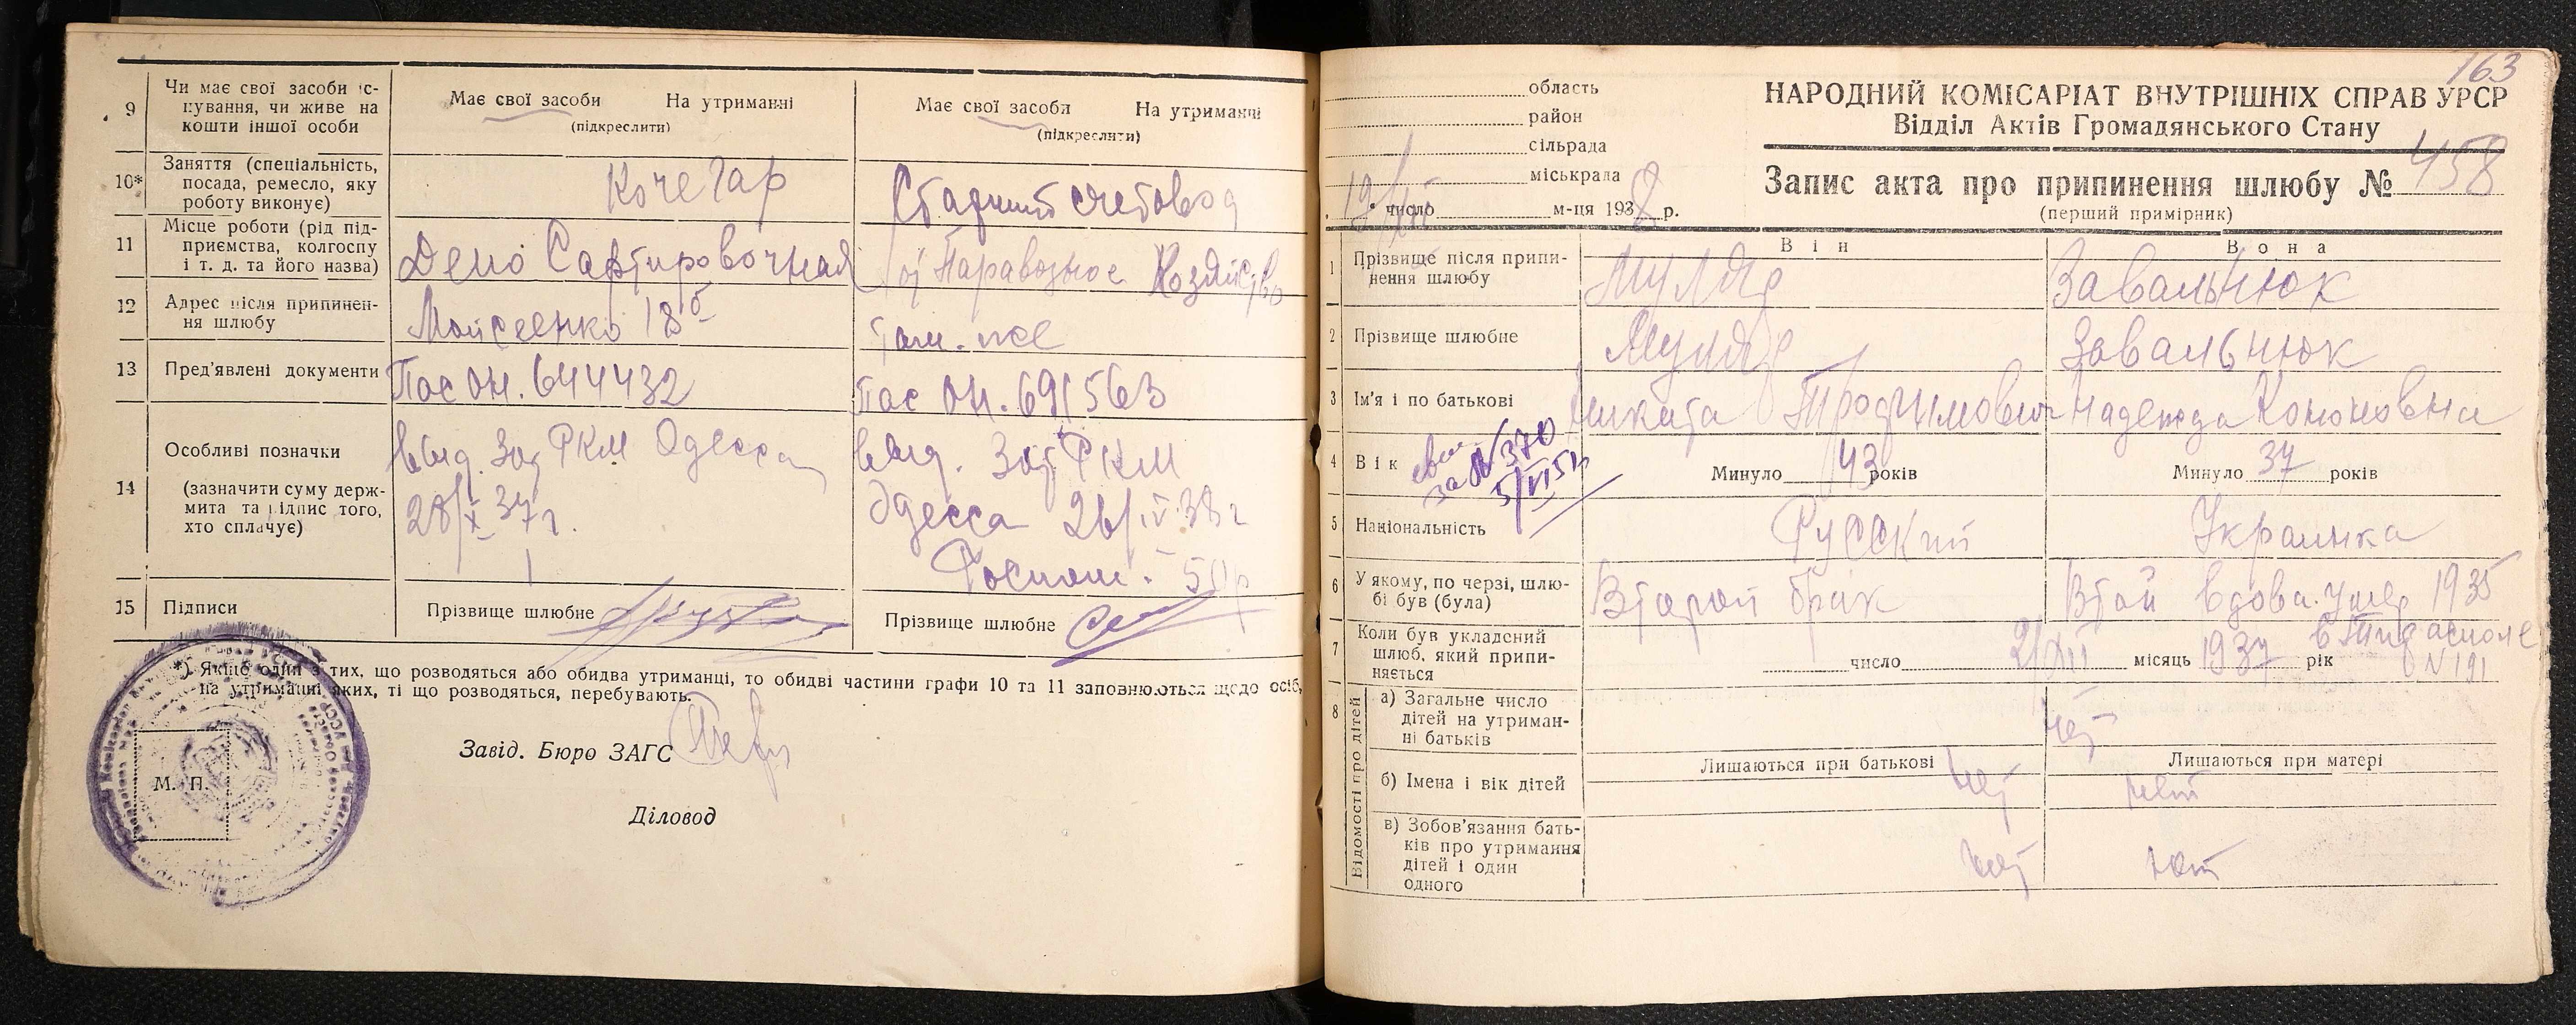 9
Чи має свої засоби іс-
нування, чи живе на
кошти іншої особи
Має свої засоби На утриманні
(підкреслити)
Має свої засоби На утриманні
(підкреслити)
10*
Заняття (спеціальність,
посада, ремесло, яку
роботу виконує)
Кочегар
Старший счетовод
11
Місце роботи (рід під-
приємства, колгоспу
і т. д. та його назва)
Депо Сартировочная
Паравозное Хозяйство
12
Адрес після припинен-
ня шлюбу
Мойсеенко 18б
там-же
13
Пред'явлені документи
Пас ОН. 644432
пас ОН. 691563
14
Особливі позначки
(зазначити суму держ-
мита та підпис того,
хто сплачує)
выд. Зог РКМ Одесса
28/X 37 г.
выд. Зог РКМ
Одесса 26/IV 38 г
50р
15
Підписи
Прізвище шлюбне
Прізвище шлюбне
*) Якщо один з тих, що розводяться або обидва утриманці, то обидві частини графи 10 та 11 заповнюються щодо осіб,
на утриманні яких, ті що розводяться, перебувають.
Завід. Бюро ЗАГС
М. П.
Діловод
163
область
район
сільрада
міськрада
19/XII число м-ця 1938 р.
НАРОДНИЙ КОМІСАРІАТ ВНУТРІШНІХ СПРАВ УРСР
Відділ Актів Громадянського Стану
Запис акта про припинення шлюбу № 458
(перший примірник)
Він
Вона
1
Прізвище після припи-
нення шлюбу
Муляр
Завальнюк
2
Прізвище шлюбне
Муляр
Завальнюк
3
Ім'я і по батькові
Никита Трофимович
Надежда Кононовна
4
Вік
за № 370
Минуло 43 років
Минуло 37 років
5
Національність
Русский
Украинка
6
У якому, по черзі, шлю-
бі був (була)
Второй брак
Втой вдова. умер 1935
7
Коли був укладений
шлюб, який припи-
няється
число 2/XII місяць 1937 рік
в Тирасполе
№ 191
8
Відомості про дітей
а) Загальне число
дітей на утриман-
ні батьків
нет
б) Імена і вік дітей
Лишаються при батькові
Лишаються при матері
нет
нет
в) Зобов'язання бать-
ків про утримання
дітей і один
одного
нет
нет